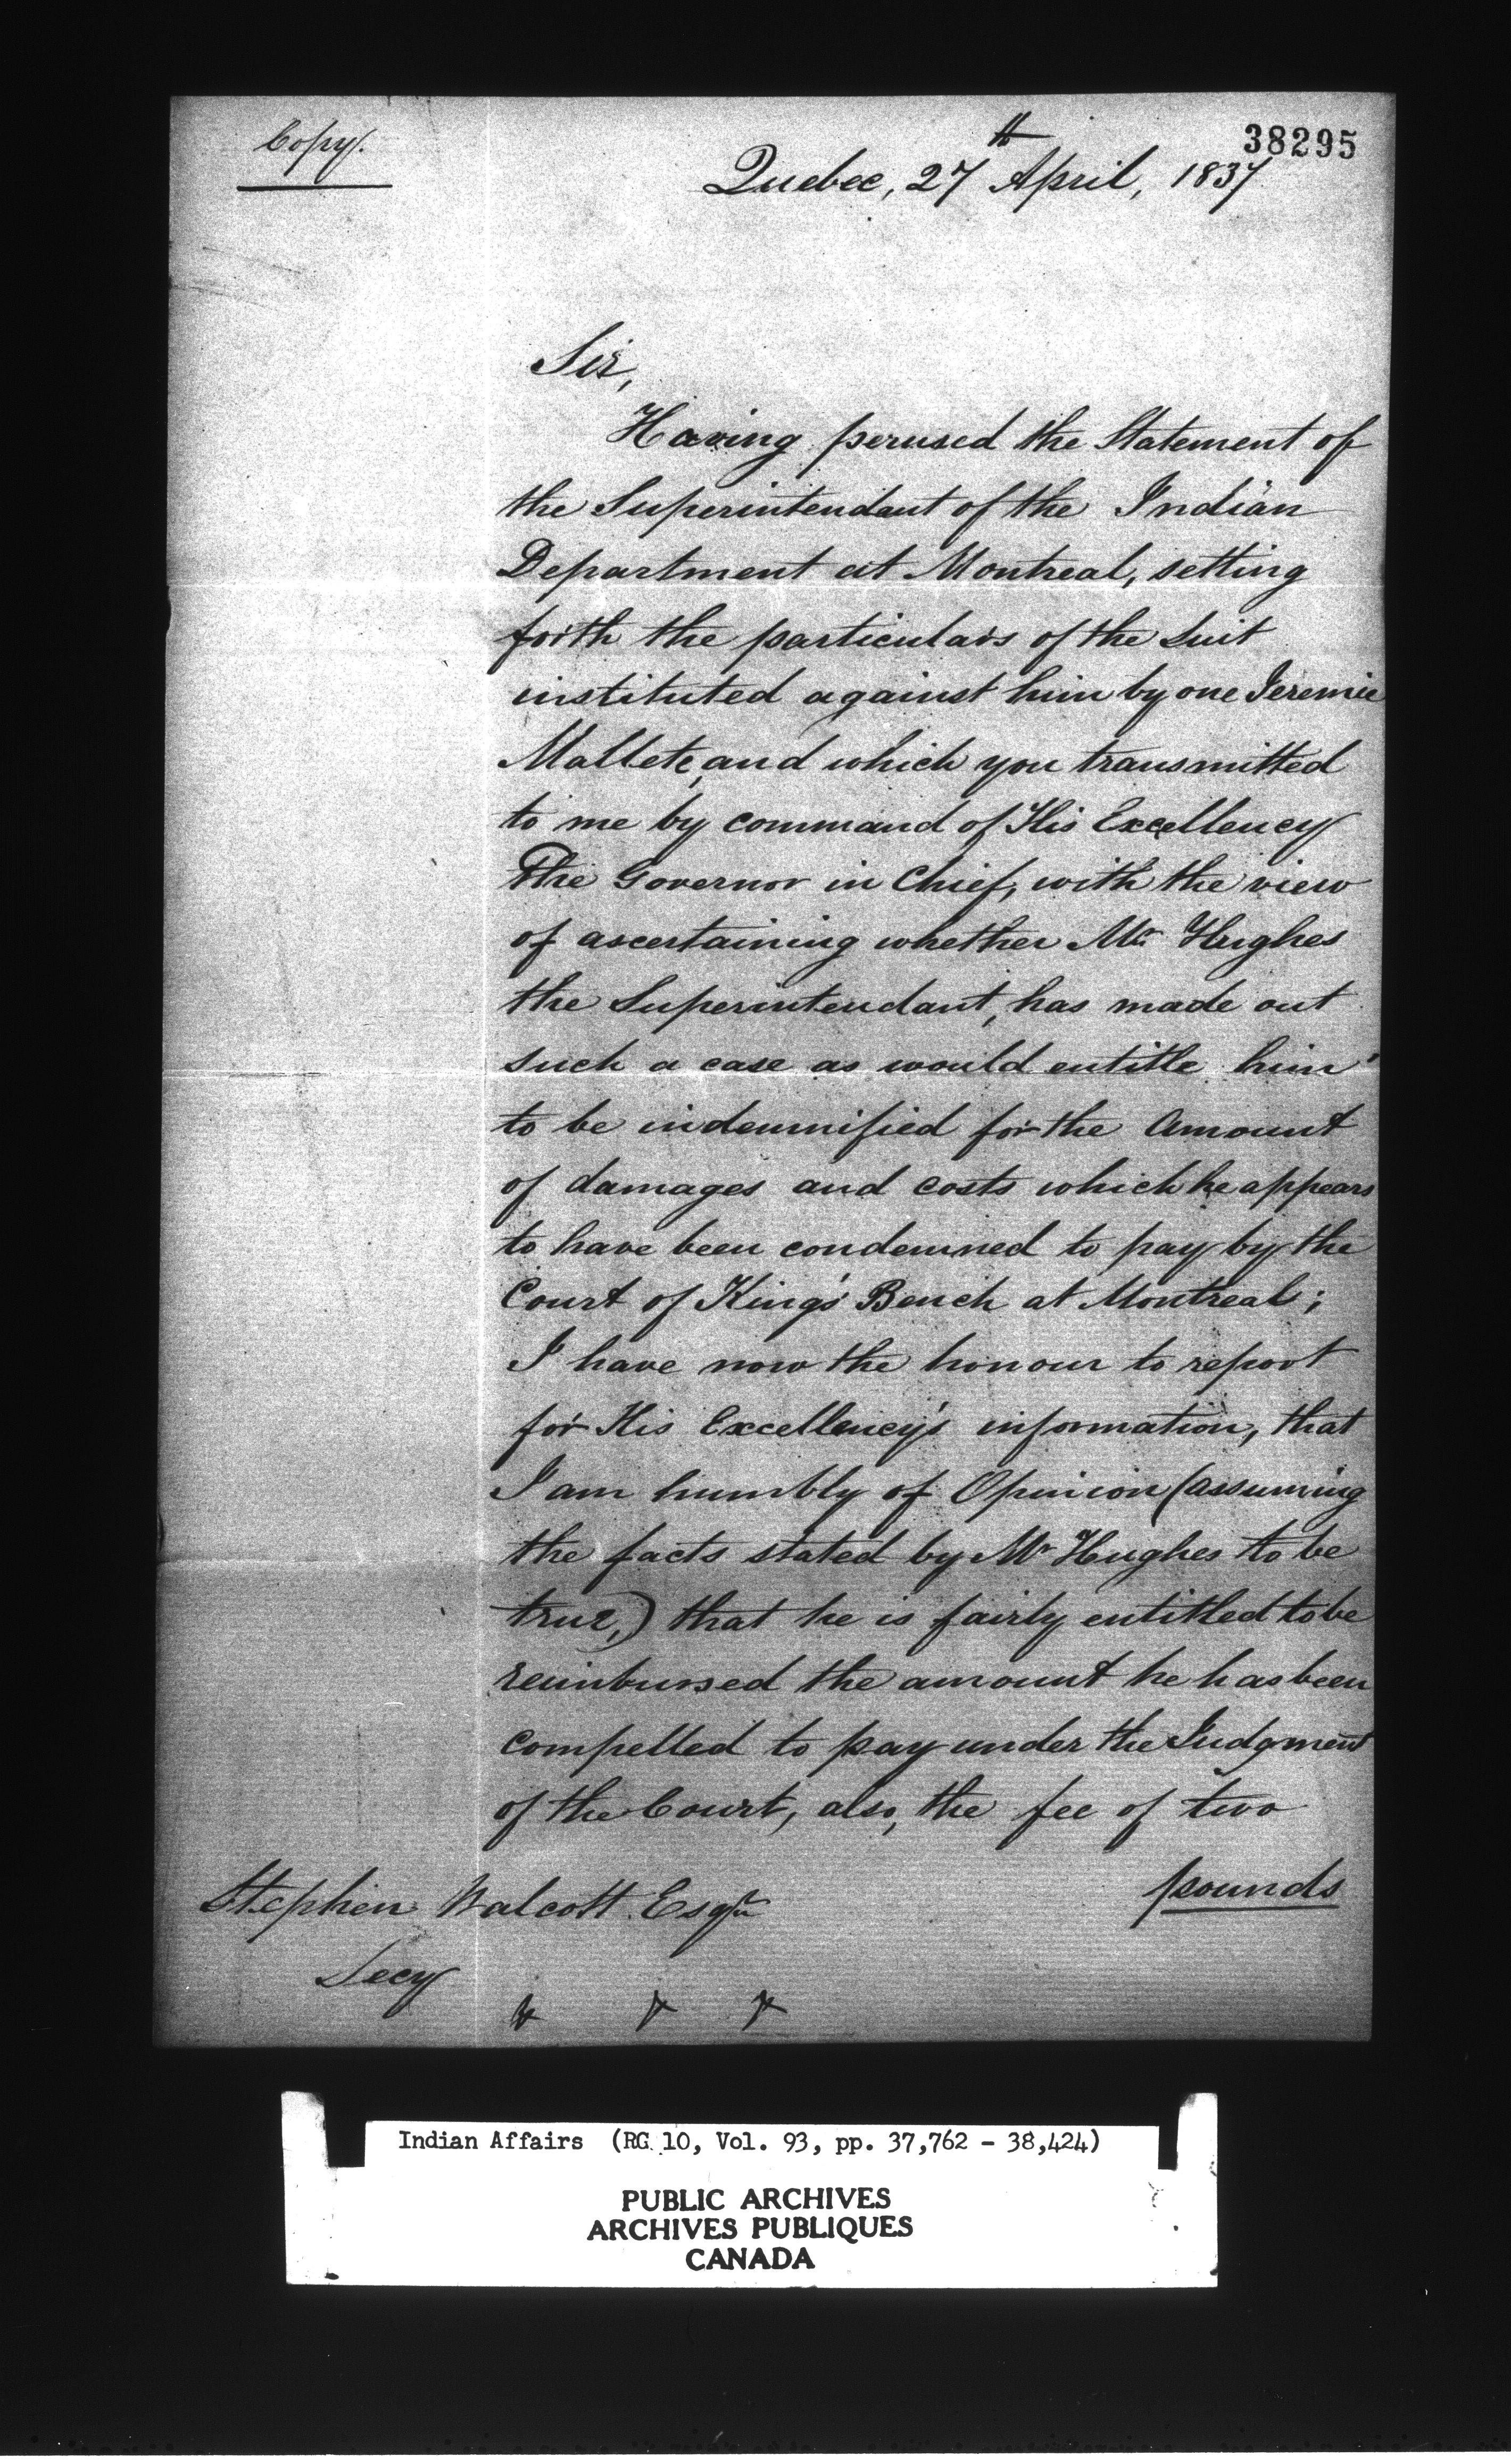 Copy.
38295
Quebec, 27th April, 1837
Sir,
Having perused the Statement of
the Superintendant of the Indian
Department at Montreal, setting
forth the particulars of the Suit
instituted against him by one Jeremie
Mallete, and which you transmitted
to me by command of His Excellency
The Governor in Chief, with the view
of ascertaining whether Mr Hughes
the Superintendant, has made out
such a case as would entitle him
to be indemnified for the Amount
of damages and costs which he appears
to have been condemned to pay by the
Court of King's Bench at Montreal;
I have now the honour to report
for His Excellency's information, that
I am humbly of Opinion (assuming
the facts stated by Mr Hughes to be
true,) that he is fairly entitled to be
reimbursed the amount he has been
compelled to pay under the Judgment
of the Court, also, the fee of two
pounds
Stephen Walcott Esqre
Secy
Indian Affairs (RG 10, Vol. 93, pp. 37,762 - 38,424)
PUBLIC ARCHIVES
ARCHIVES PUBLIQUES
CANADA